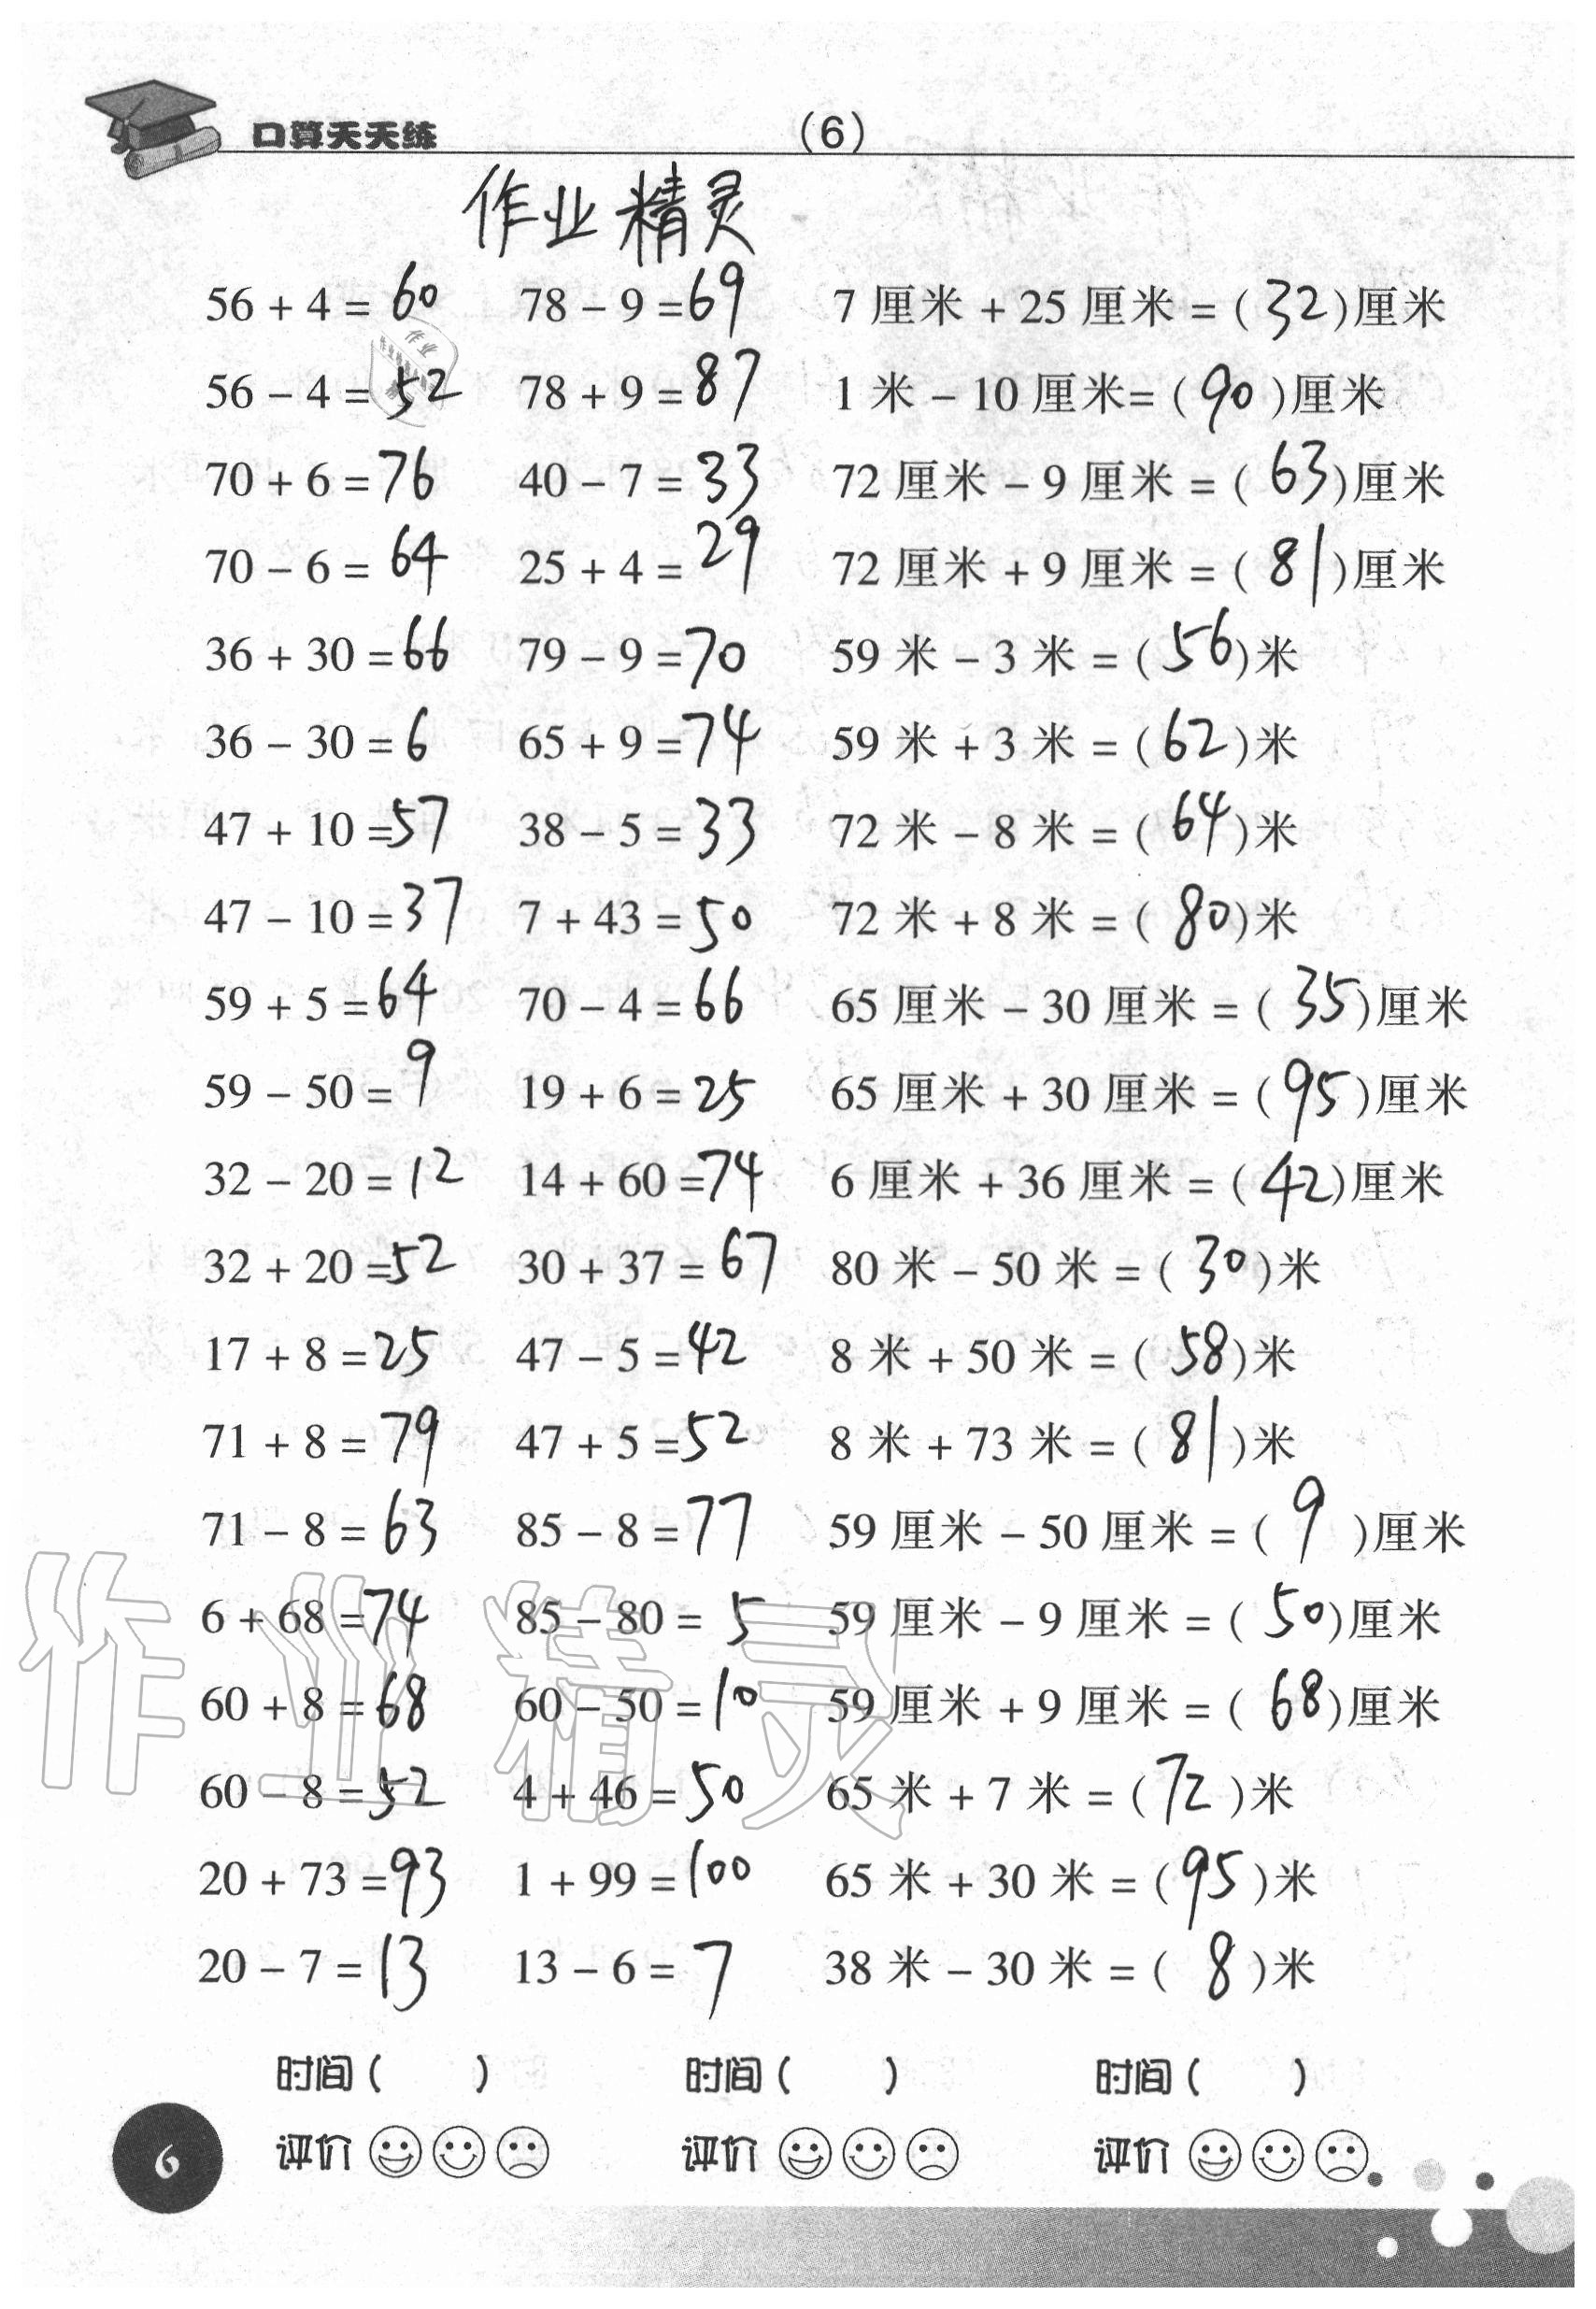 口算天天练 (6)
作业精灵
56 + 4 = 60 78 - 9 = 69 7 厘米 + 25 厘米 = (32)厘米
56 - 4 = 52 78 + 9 = 87 1 米 - 10 厘米= (90)厘米
70 + 6 = 76 40 - 7 = 33 72 厘米 - 9 厘米 = (63)厘米
70 - 6 = 64 25 + 4 = 29 72 厘米 + 9 厘米 = (81)厘米
36 + 30 = 66 79 - 9 = 70 59 米 - 3 米 = (56)米
36 - 30 = 6 65 + 9 = 74 59 米 + 3 米 = (62)米
47 + 10 = 57 38 - 5 = 33 72 米 - 8 米 = (64)米
47 - 10 = 37 7 + 43 = 50 72 米 + 8 米 = (80)米
59 + 5 = 64 70 - 4 = 66 65 厘米 - 30 厘米 = (35)厘米
59 - 50 = 9 19 + 6 = 25 65 厘米 + 30 厘米 = (95)厘米
32 - 20 = 12 14 + 60 = 74 6 厘米 + 36 厘米 = (42)厘米
32 + 20 = 52 30 + 37 = 67 80 米 - 50 米 = (30)米
17 + 8 = 25 47 - 5 = 42 8 米 + 50 米 = (58)米
71 + 8 = 79 47 + 5 = 52 8 米 + 73 米 = (81)米
71 - 8 = 63 85 - 8 = 77 59 厘米 - 50 厘米 = (9)厘米
6 + 68 = 74 85 - 80 = 5 59 厘米 - 9 厘米 = (50)厘米
60 + 8 = 68 60 - 50 = 10 59 厘米 + 9 厘米 = (68)厘米
60 - 8 = 52 4 + 46 = 50 65 米 + 7 米 = (72)米
20 + 73 = 93 1 + 99 = 100 65 米 + 30 米 = (95)米
20 - 7 = 13 13 - 6 = 7 38 米 - 30 米 = (8)米
作业精灵
时间( ) 时间( ) 时间( )
评价 评价 评价
6